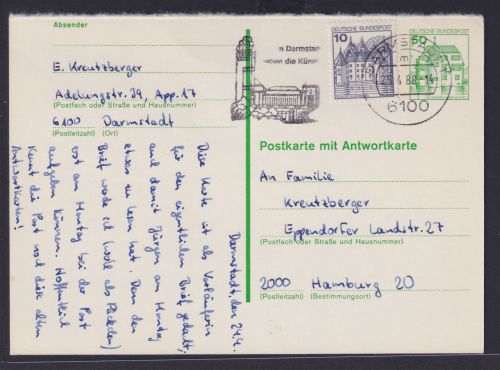 Absender
E. Kreutzberger
Adelungstr. 29, App. 17
(Postfach oder Straße und Hausnummer)
6100 Darmstadt
(Postleitzahl) (Ort)
n Darmstadt
eben die Küns
10
DEUTSCHE BUNDESPOST
DEUTSCHE BUNDESPOST
60
DARMSTADT
6100
Postkarte mit Antwortkarte
An Familie
Kreutzberger
Eppendorfer Landstr. 27
(Postfach oder Straße und Hausnummer)
2000 Hamburg 20
(Postleitzahl) (Bestimmungsort)
Darmstadt, den 24.4.
Diese Karte ist als Vorläuferin
für den eigentlichen Brief gedacht,
und damit Jürgen am Montag
etwas zu lesen hat. Denn den
Brief werde ich (wohl als Päckchen)
erst am Montag bei der Post
aufgeben können. Hoffentlich
kennt die Post noch diese alten
Antwortkarten!